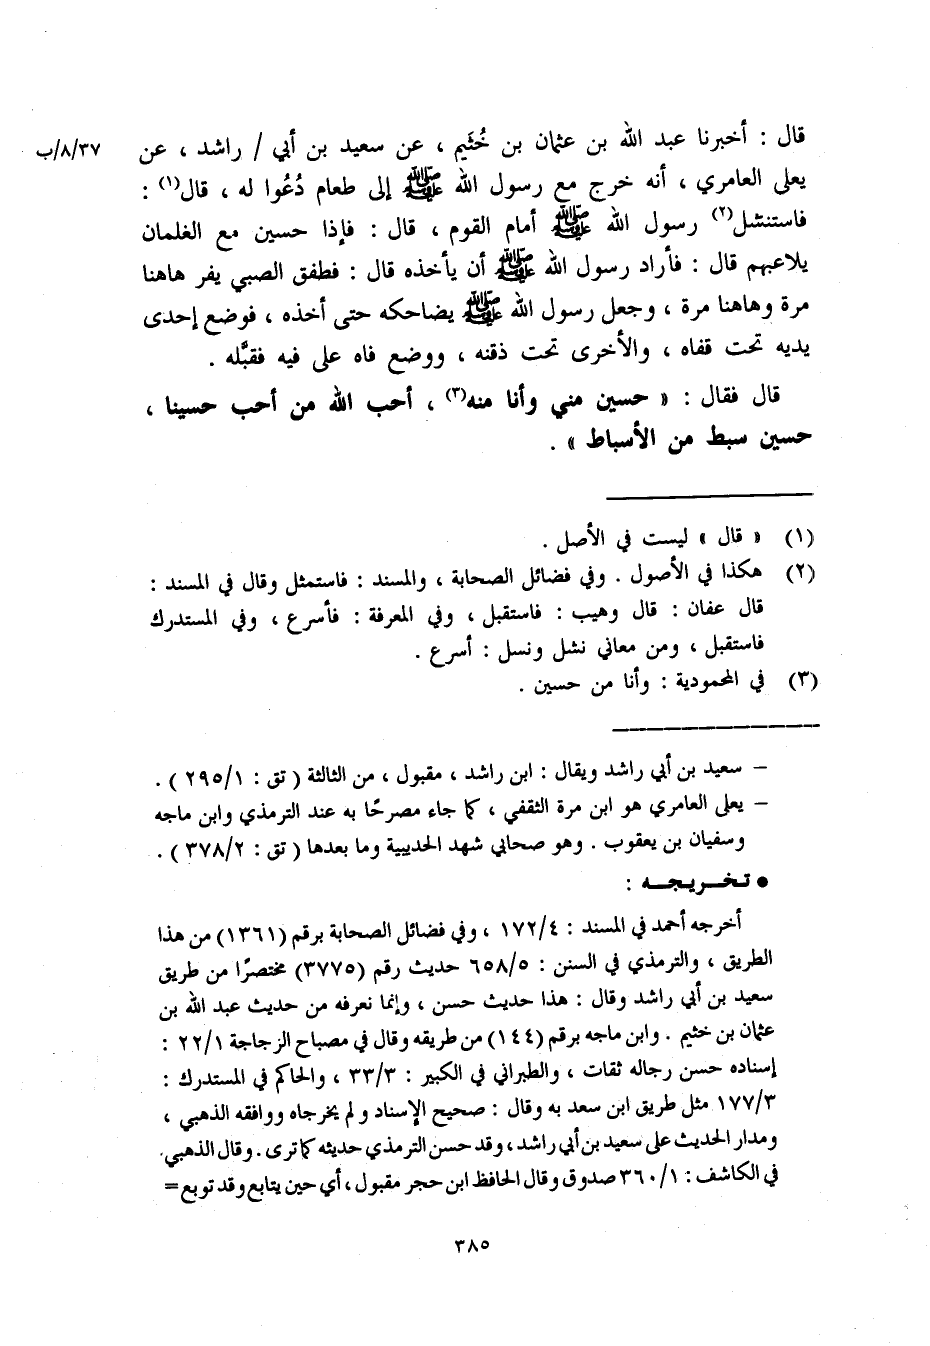 قال : أخبرنا عبد الله بن عثمان بن خُثَيم ، عن سعيد بن أبي / راشد ، عن ٨/٣٧/ب
يعلى العامري ، أنه خرج مع رسول الله ﷺ إلى طعام دُعُوا له ، قال(١) :
فاستنشل(٢) رسول الله ﷺ أمام القوم ، قال : فإذا حسين مع الغلمان
يلاعبهم قال : فأراد رسول الله ﷺ أن يأخذه قال : فطفق الصبي يفر هاهنا
مرة وهاهنا مرة ، وجعل رسول الله ﷺ يضاحكه حتى أخذه ، فوضع إحدى
يديه تحت قفاه ، والأخرى تحت ذقنه ، ووضع فاه على فيه فقبَّله .
قال فقال : « حسين مني وأنا منه(٣) ، أحب الله من أحب حسينا ،
حسين سبط من الأسباط » .
(١) « قال » ليست في الأصل .
(٢) هكذا في الأصول . وفي فضائل الصحابة ، والمسند : فاستمثل وقال في المسند :
قال عفان : قال وهيب : فاستقبل ، وفي المعرفة : فأسرع ، وفي المستدرك
فاستقبل ، ومن معاني نشل ونسل : أسرع .
(٣) في المحمودية : وأنا من حسين .
– سعيد بن أبي راشد ويقال : ابن راشد ، مقبول ، من الثالثة ( تق : ٢٩٥/١ ) .
– يعلى العامري هو ابن مرة الثقفي ، كما جاء مصرحًا به عند الترمذي وابن ماجه
وسفيان بن يعقوب . وهو صحابي شهد الحديبية وما بعدها ( تق : ٣٧٨/٢ ) .
● تـخـريـجـه :
أخرجه أحمد في المسند : ١٧٢/٤ ، وفي فضائل الصحابة برقم (١٣٦١) من هذا
الطريق ، والترمذي في السنن : ٦٥٨/٥ حديث رقم (٣٧٧٥) مختصرًا من طريق
سعيد بن أبي راشد وقال : هذا حديث حسن ، وإنما نعرفه من حديث عبد الله بن
عثمان بن خثيم . وابن ماجه برقم (١٤٤) من طريقه وقال في مصباح الزجاجة ٢٢/١ :
إسناده حسن رجاله ثقات ، والطبراني في الكبير : ٣٣/٣ ، والحاكم في المستدرك :
١٧٧/٣ مثل طريق ابن سعد به وقال : صحيح الإسناد و لم يخرجاه ووافقه الذهبي ،
ومدار الحديث على سعيد بن أبي راشد ، وقد حسن الترمذي حديثه كما ترى . وقال الذهبي
في الكاشف : ٣٦٠/١ صدوق وقال الحافظ ابن حجر مقبول ، أي حين يتابع وقد توبع =
٣٨٥